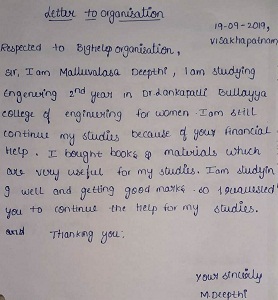 Letter to organisation
19-09-2019,
visakhapatnam
Respected to Bighelp organisation,
Sir, I am Malluvalasa Deepthi, I am studying
Engenering 2nd year in Dr Lankapalli Bullayya
college of engineering for women. I am still
continue my studies because of your financial
Help. I bought books & materials which
are very useful for my studies. I am studyin
g well and getting good marks. so I requested
you to continue the help for my studies.
and Thanking you.
Your sincirly
M.Deepthi